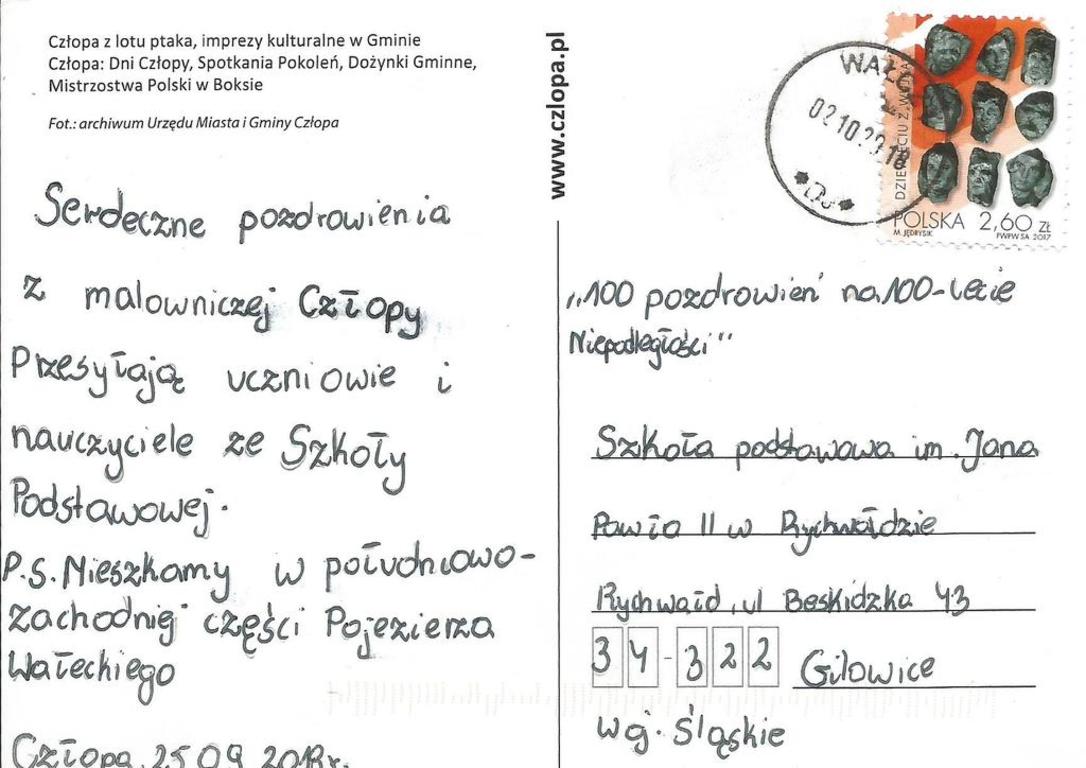 Człopa z lotu ptaka, imprezy kulturalne w Gminie
Człopa: Dni Człopy, Spotkania Pokoleń, Dożynki Gminne,
Mistrzostwa Polski w Boksie
Fot.: archiwum Urzędu Miasta i Gminy Człopa
Serdeczne pozdrowienia
z malowniczej Człopy
Przesyłają uczniowie i
nauczyciele ze Szkoły
Podstawowej.
P.S. Mieszkamy w południowo-
zachodniej części Pojezierza
Wałeckiego
Człopa, 25 09 2018r.
www.czlopa.pl
WAŁCZ
02.10.2018
POLSKA 2,60 ZŁ
M. JĘDRYSIK
PWPW SA 2017
„100 pozdrowień na 100-lecie
Niepodległości"
Szkoła podstawowa im. Jana
Pawła II w Rychwałdzie
Rychwałd, ul Beskidzka 43
34-322 Gilowice
woj. Śląskie